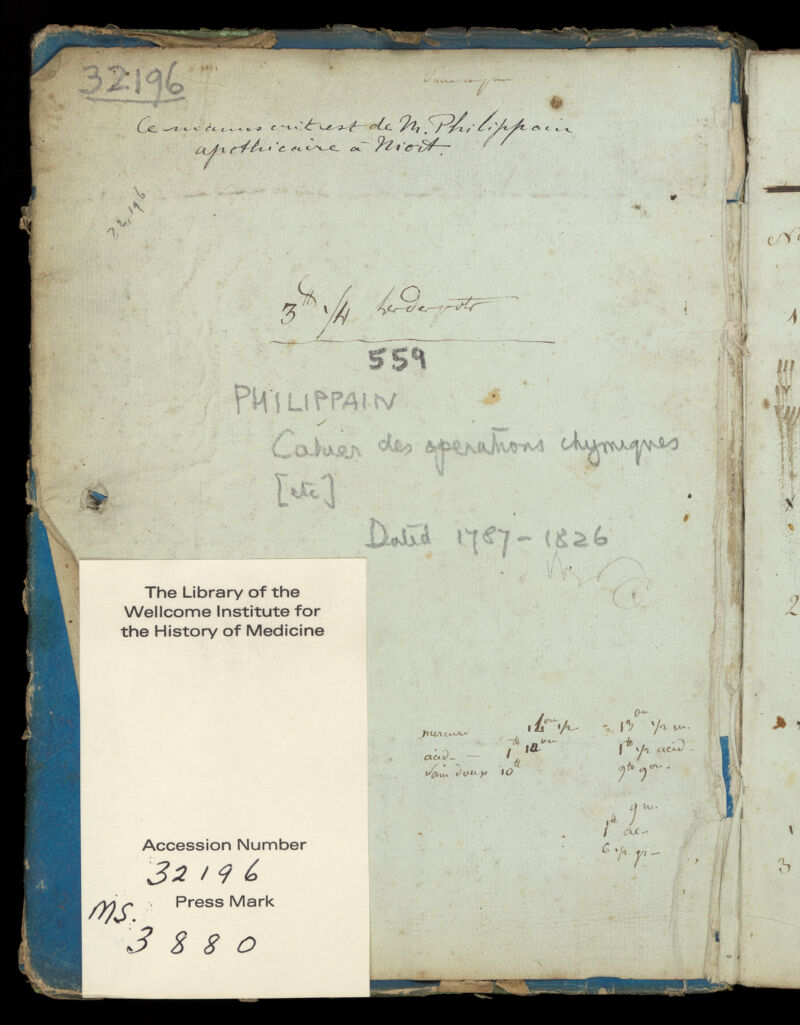 32196
Ce manuscrit est de M. Philippain
apothicaire à Niort.
32,196
3 ₶ 1/4
559
PHILIPPAIN
Cahier des operations chymiques
[etc]
Dated 1787-1826
The Library of the
Wellcome Institute for
the History of Medicine
Accession Number
32196
Press Mark
MS.
3880
mercure 14 on 1/2 = 13 on 1/2 m.
acid- 1 ₶ 10 on 1 ₶ 1/2 acid-
Sain doux 10 ₶ 9 ₶ 9 on-
9 m.
1 ₶ ac-
6 1/2 gr-
N
1
2
3